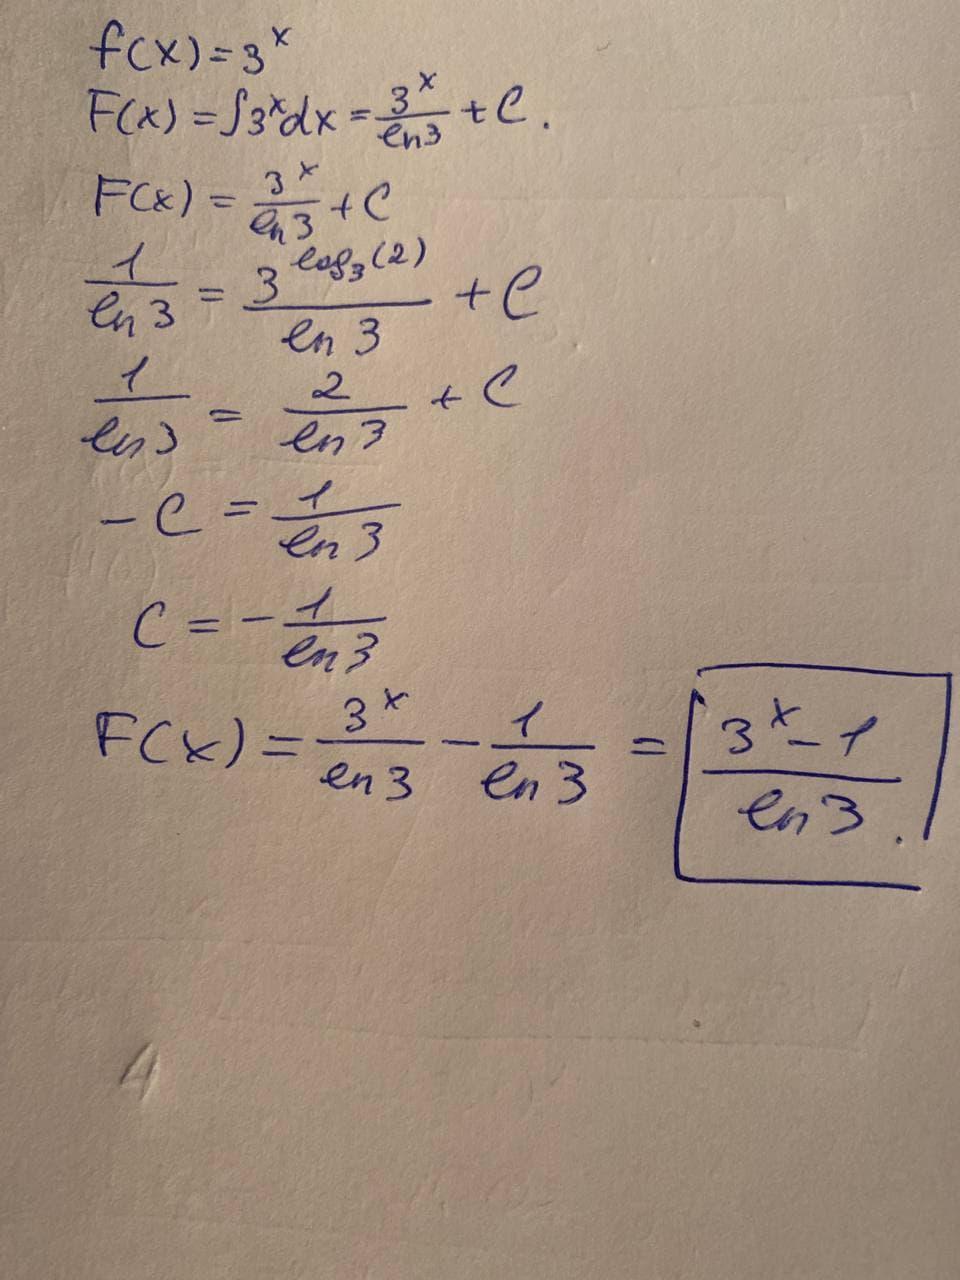 f(x)=3^x
F(x)=∫3^x dx=3^x/ln3+C.
F(x)=3^x/ln3+C
1/ln3=3^(log₃(2))/ln3+C
1/ln3=2/ln3+C
-C=1/ln3
C=-1/ln3
F(x)=3^x/ln3-1/ln3=(3^x-1)/ln3.